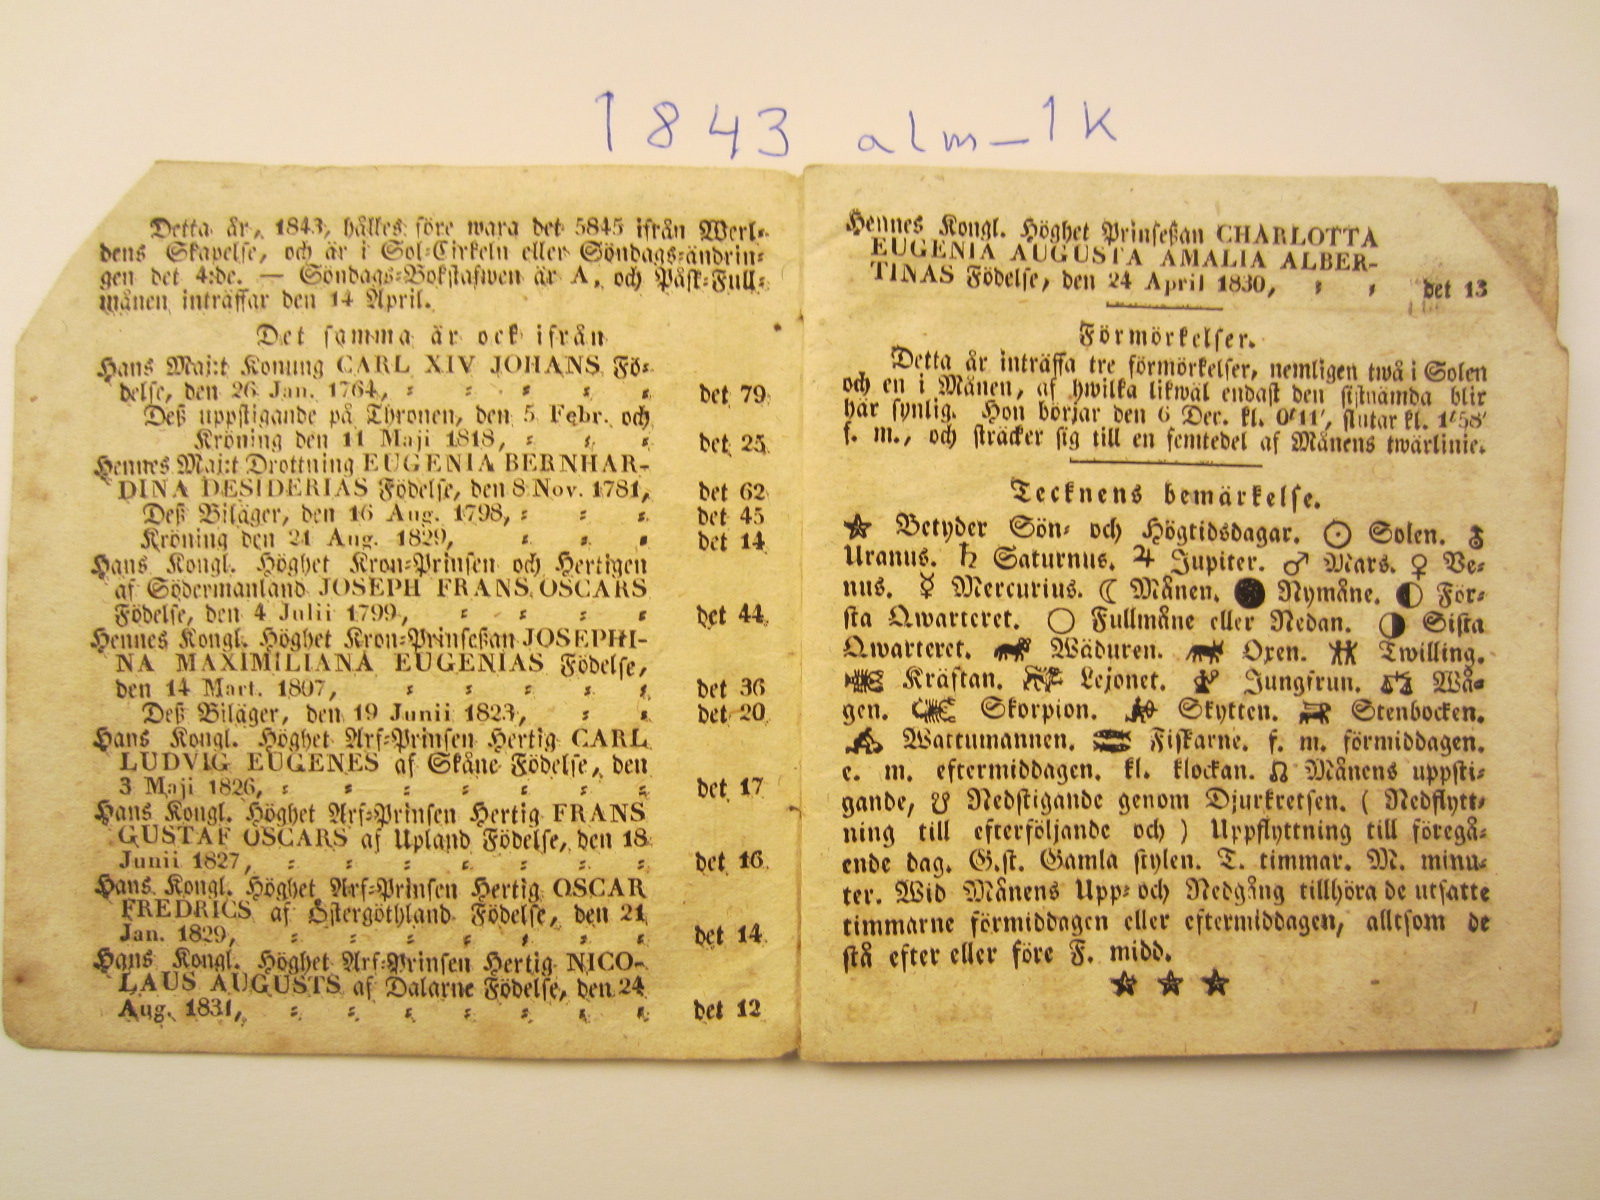 1843 alm_1k
Detta år, 1843, hålles före wara det 5845 ifrån Werl-
dens Skapelse, och är i Sol-Cirkeln eller Söndags-ändrin-
gen det 4:de. — Söndags-Bokstafwen är A, och Påsk-Full-
månen inträffar den 14 April.
Det samma är ock ifrån
Hans Maj:t Konung CARL XIV JOHANS Fö-
delse, den 26 Jan. 1764, det 79
Deß uppstigande på Thronen, den 5 Febr. och
Kröning den 11 Maji 1818, det 25
Hennes Maj:t Drottning EUGENIA BERNHAR-
DINA DESIDERIAS Födelse, den 8 Nov. 1781, det 62
Deß Biläger, den 16 Aug. 1798, det 45
Kröning den 21 Aug. 1829, det 14
Hans Kongl. Höghet Kron-Prinsen och Hertigen
af Södermanland JOSEPH FRANS OSCARS
Födelse, den 4 Julii 1799, det 44
Hennes Kongl. Höghet Kron-Prinseßan JOSEPHI-
NA MAXIMILIANA EUGENIAS Födelse,
den 14 Mart. 1807, det 36
Deß Biläger, den 19 Junii 1823, det 20
Hans Kongl. Höghet Arf-Prinsen Hertig CARL
LUDVIG EUGENES af Skåne Födelse, den
3 Maji 1826, det 17
Hans Kongl. Höghet Arf-Prinsen Hertig FRANS
GUSTAF OSCARS af Upland Födelse, den 18
Junii 1827, det 16
Hans Kongl. Höghet Arf-Prinsen Hertig OSCAR
FREDRICS af Östergöthland Födelse, den 21
Jan. 1829, det 14
Hans Kongl. Höghet Arf-Prinsen Hertig NICO-
LAUS AUGUSTS af Dalarne Födelse, den 24
Aug. 1831, det 12
Hennes Kongl. Höghet Prinseßan CHARLOTTA
EUGENIA AUGUSTA AMALIA ALBER-
TINAS Födelse, den 24 April 1830, det 13
Förmörkelser.
Detta år inträffa tre förmörkelser, nemligen twå i Solen
och en i Månen, af hwilka likwäl endast den sistnämda blir
här synlig. Hon börjar den 6 Dec. kl. 0'11', slutar kl. 1'58'
f. m., och sträcker sig till en femtedel af Månens twärlinie.
Tecknens bemärkelse.
☆ Betyder Sön- och Högtidsdagar. ☉ Solen. ⛢
Uranus. ♄ Saturnus. ♃ Jupiter. ♂ Mars. ♀ Ve-
nus. ☿ Mercurius. ☾ Månen. ● Nymåne. ◐ För-
sta Qwarteret. ○ Fullmåne eller Nedan. ◑ Sista
Qwarteret. Wäduren. Oxen. Twilling.
Kräftan. Lejonet. Jungfrun. Wå-
gen. Skorpion. Skytten. Stenbocken.
Wattumannen. Fiskarne. f. m. förmiddagen.
e. m. eftermiddagen. kl. klockan. ☊ Månens uppsti-
gande, ☋ Nedstigande genom Djurkretsen. ( Nedflytt-
ning till efterföljande och ) Uppflyttning till föregå-
ende dag. G.st. Gamla stylen. T. timmar. M. minu-
ter. Wid Månens Upp- och Nedgång tillhöra de utsatte
timmarne förmiddagen eller eftermiddagen, alltsom de
stå efter eller före F. midd.
☆ ☆ ☆